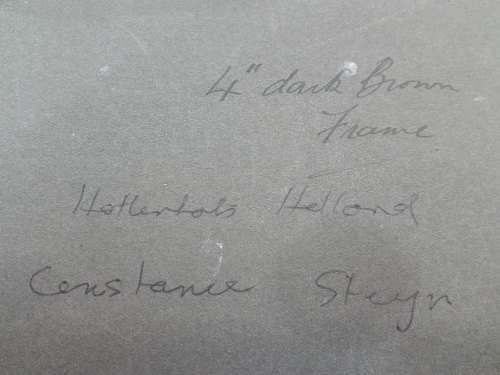 4" dark Brown
Frame
Hottentots Holland
Constance Steyn